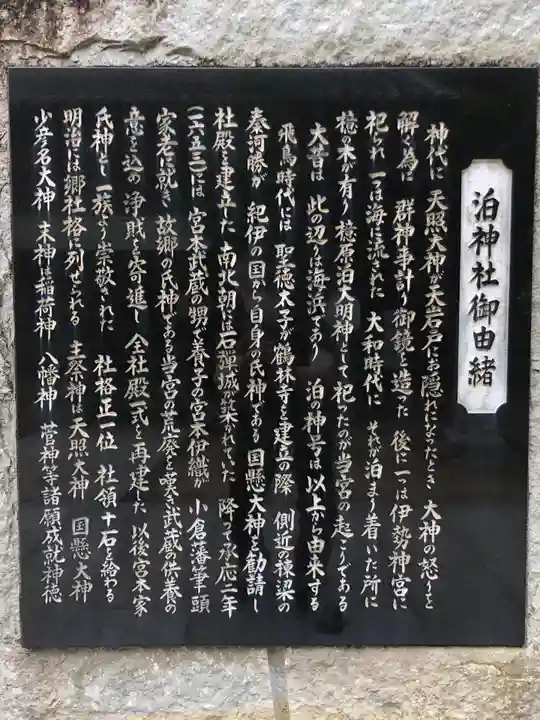 泊神社御由緒
神代に 天照大神が天岩戸にお隠れになったとき 大神の怒りを
解く為に 群神事計り御鏡を造った 後に一つは伊勢神宮に
祀られ 一つは海に流された 大和時代に それが泊まり着いた所に
檍の木が有り 檍原泊大明神として 祀ったのが当宮の起こりである
大昔は 此の辺は海浜であり 泊の神号は以上から由来する
飛鳥時代には 聖徳太子が鶴林寺を建立の際 側近の棟梁の
秦河勝が 紀伊の国から自身の氏神である 国懸大神を勧請し
社殿を建立した 南北朝には石弾城が築かれていた 降って承応二年
(一六五三)には 宮本武蔵の甥で養子の宮本伊織が 小倉藩筆頭
家老に就き 故郷の氏神である当宮の荒廃を嘆き武蔵の供養の
意を込め 浄財を寄進し 全社殿一式を再建した 以後宮本家
氏神とし 一族より崇敬された 社格正一位 社領十石を給わる
明治には郷社格に列せられる 主祭神は天照大神 国懸大神
少彦名大神 末神は稲荷神 八幡神 菅神等諸願成就神徳